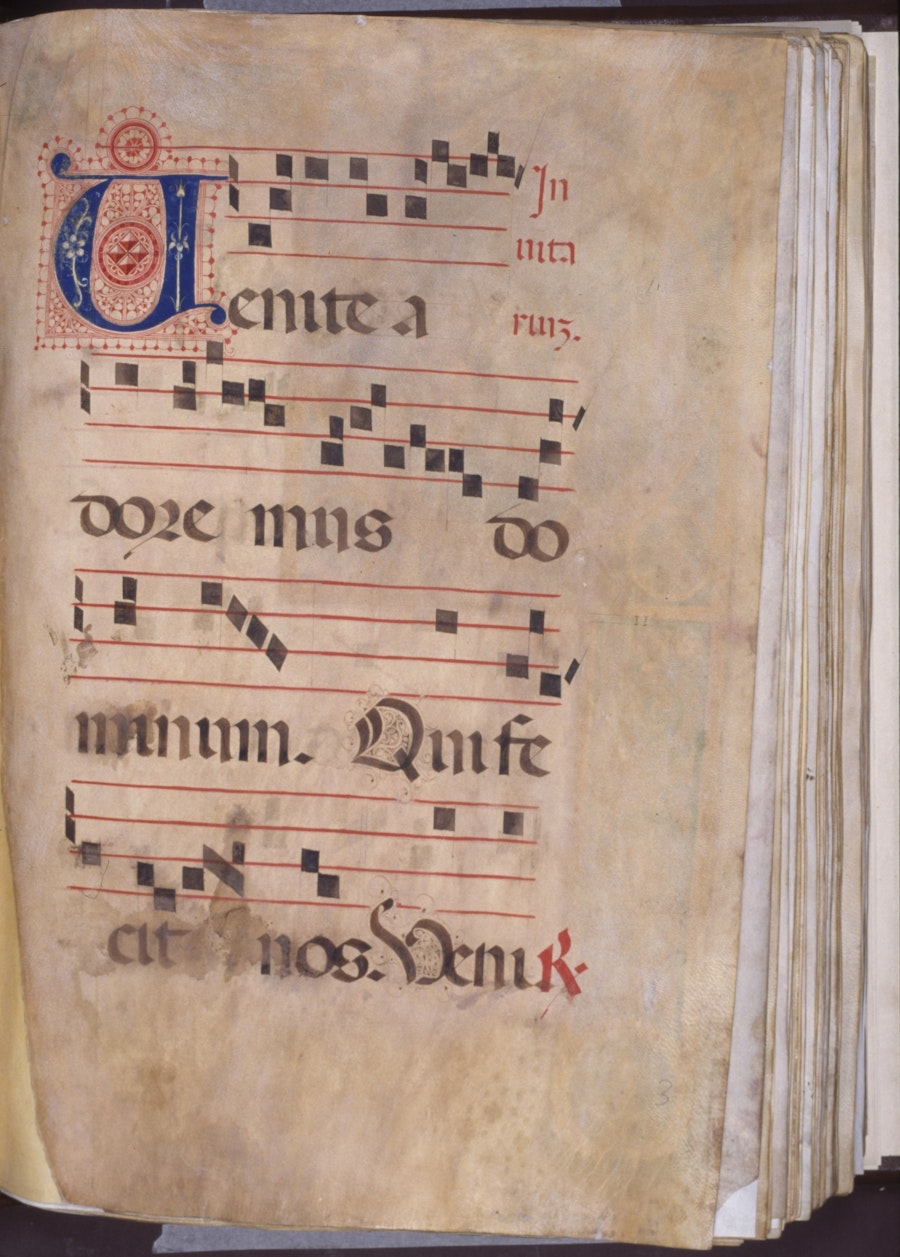 Uenite a
In
uita
dore mus do
minum. Qui fe
cit nos. Veni R.
3